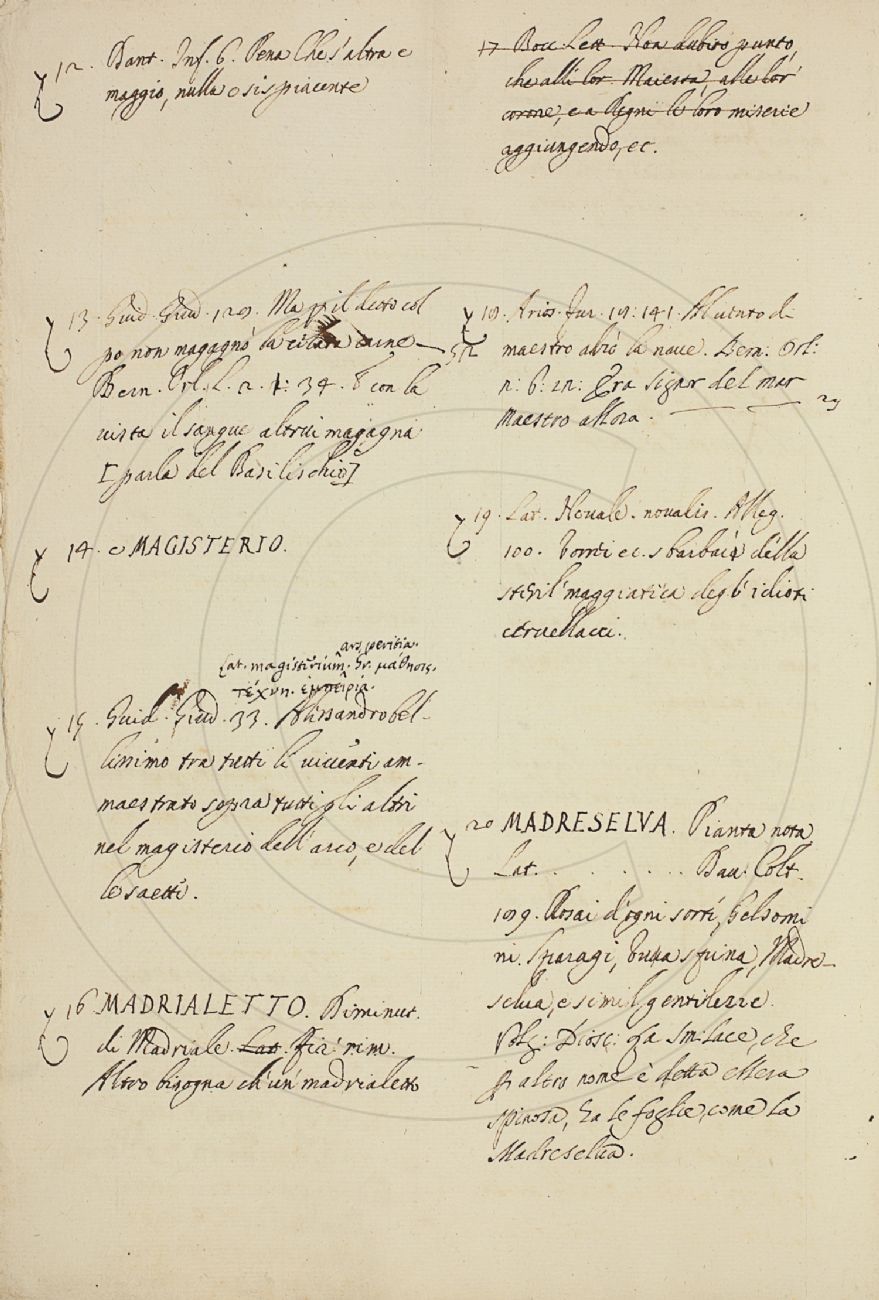 12. Dant. Inf. 6. Pena che s'altra e
maggio, nulla e sì spiacente
13. Guid. Giud. 129. Ma il detto col
po non magagnò la carne
Bern. Orl. L. 2. 1: 34. E con la
vista il sangue altrui magagna
[parla del Basilischio]
14. e MAGISTERIO.
ars, peritia.
Lat. magisterium. Gr. μάθησις,
τέχνη. ἐμπειρία.
15. Guid. Giud. 33. Alissandro bel-
lissimo tra tutti li viventi am-
maestrato sopra tutti gli altri
nel magisterio dell'arco, e del
le saette.
16 MADRIALETTO. Diminut.
di Madriale. Lat. Fir. rim.
Altro bisogna ch'un madrialetto
17 Bocc. Lett. Non dubito punto,
che alli lor Maiestà, alle lor
corone, e a Regni le loro miserie
aggiungendo, ec.
18. Arios. Fur. 19: 141. Al vento di
maestro alzò la nave. Bern: Orl:
2: 6: 12: Era signor del mar
Maestro allora.
19. Lat. Novale. novalis. Alleg.
100. ec. della
steril maggiatica degl'idioti
cervellacci.
20 MADRESELVA. Pianta nota
Lat. . . . . . . Dav. Colt.
189. Rosai d'ogni sorte, Gelsomi
ni. Sparagi, Uva spina, Madre-
selva, e simil gentilezze.
Volg: Diosc: La Smilace, che
p altro nome è detta ellera
spinosa, ha le foglie, come la
Madreselva.